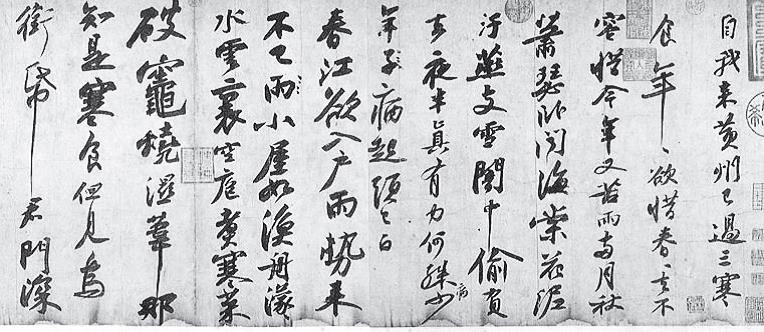 自我来黄州已過三寒
食年々欲惜春々去不
容惜今年又苦雨兩月秋
蕭瑟卧聞海棠花泥
汙燕支雪闇中偷負
去夜半真有力何殊病少
年子病起須已白
春江欲入户雨勢来
不已雨小屋如漁舟濛々
水雲裏空庖煮寒菜
破竈燒濕葦那
知是寒食但見烏
銜帋君門深